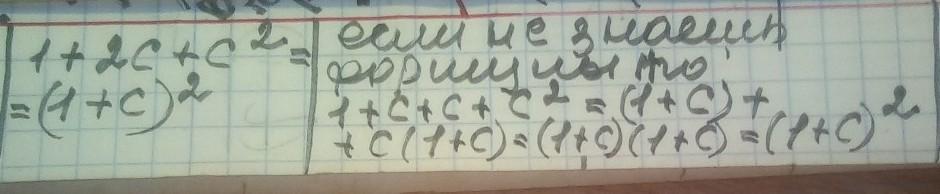 1+2c+c²=
=(1+c)²
если не знаешь
формулы то
1+c+c+c²=(1+c)+
+c(1+c)=(1+c)(1+c)=(1+c)²